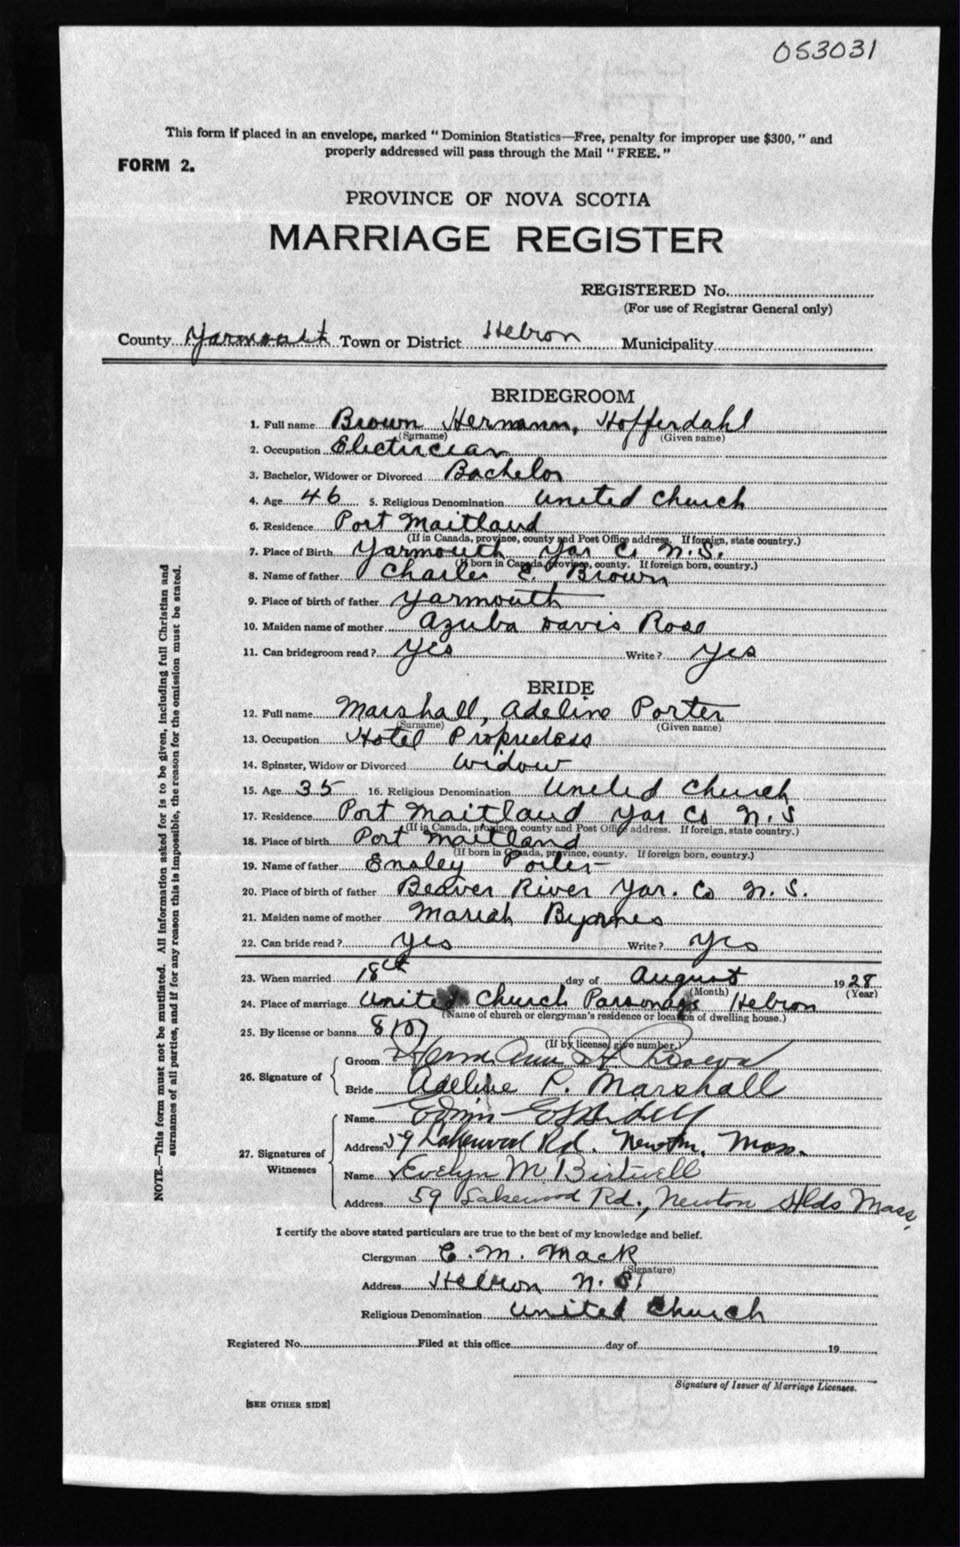 053031
This form if placed in an envelope, marked "Dominion Statistics—Free, penalty for improper use $300," and
properly addressed will pass through the Mail "FREE."
FORM 2.
PROVINCE OF NOVA SCOTIA
MARRIAGE REGISTER
REGISTERED No.
(For use of Registrar General only)
County Yarmouth Town or District Hebron Municipality
BRIDEGROOM
1. Full name Brown Hermann, Hofferdahl
(Surname) (Given name)
2. Occupation Electrician
3. Bachelor, Widower or Divorced Bachelor
4. Age 46 5. Religious Denomination United Church
6. Residence Port Maitland
(If in Canada, province, county and Post Office address. If foreign, state country.)
7. Place of Birth Yarmouth Yar Co N.S.
(If born in Canada, province, county. If foreign born, country.)
8. Name of father Charles E. Brown
9. Place of birth of father Yarmouth
10. Maiden name of mother Azuba Davis Rose
11. Can bridegroom read? Yes Write? Yes
BRIDE
12. Full name Marshall, Adeline Porter
(Surname) (Given name)
13. Occupation Hotel Proprietess
14. Spinster, Widow or Divorced Widow
15. Age 35 16. Religious Denomination United Church
17. Residence Port Maitland Yar Co N.S
(If in Canada, province, county and Post Office address. If foreign, state country.)
18. Place of birth Port Maitland
(If born in Canada, province, county. If foreign born, country.)
19. Name of father Ensley Porter
20. Place of birth of father Beaver River Yar. Co N.S.
21. Maiden name of mother Mariah Byrnes
22. Can bride read? Yes Write? Yes
23. When married 18th day of August 1928
(Month) (Year)
24. Place of marriage United Church Parsonage Hebron
(Name of church or clergyman's residence or location of dwelling house.)
25. By license or banns 8107
(If by license, give number.)
26. Signature of
Groom Hermann H Brown
Bride Adeline P. Marshall
27. Signatures of Witnesses
Name Edwin
Address 59 Lakewood Rd. Newton, Mass.
Name Evelyn M. Birtwell
Address 59 Lakewood Rd., Newton Hlds Mass,
I certify the above stated particulars are true to the best of my knowledge and belief.
Clergyman C. M. Mack
(Signature)
Address Hebron N.S.
Religious Denomination United Church
Registered No. Filed at this office day of 19
Signature of Issuer of Marriage Licenses.
[SEE OTHER SIDE]
NOTE.—This form must not be mutilated. All information asked for is to be given, including full Christian and
surnames of all parties, and if for any reason this is impossible, the reason for the omission must be stated.